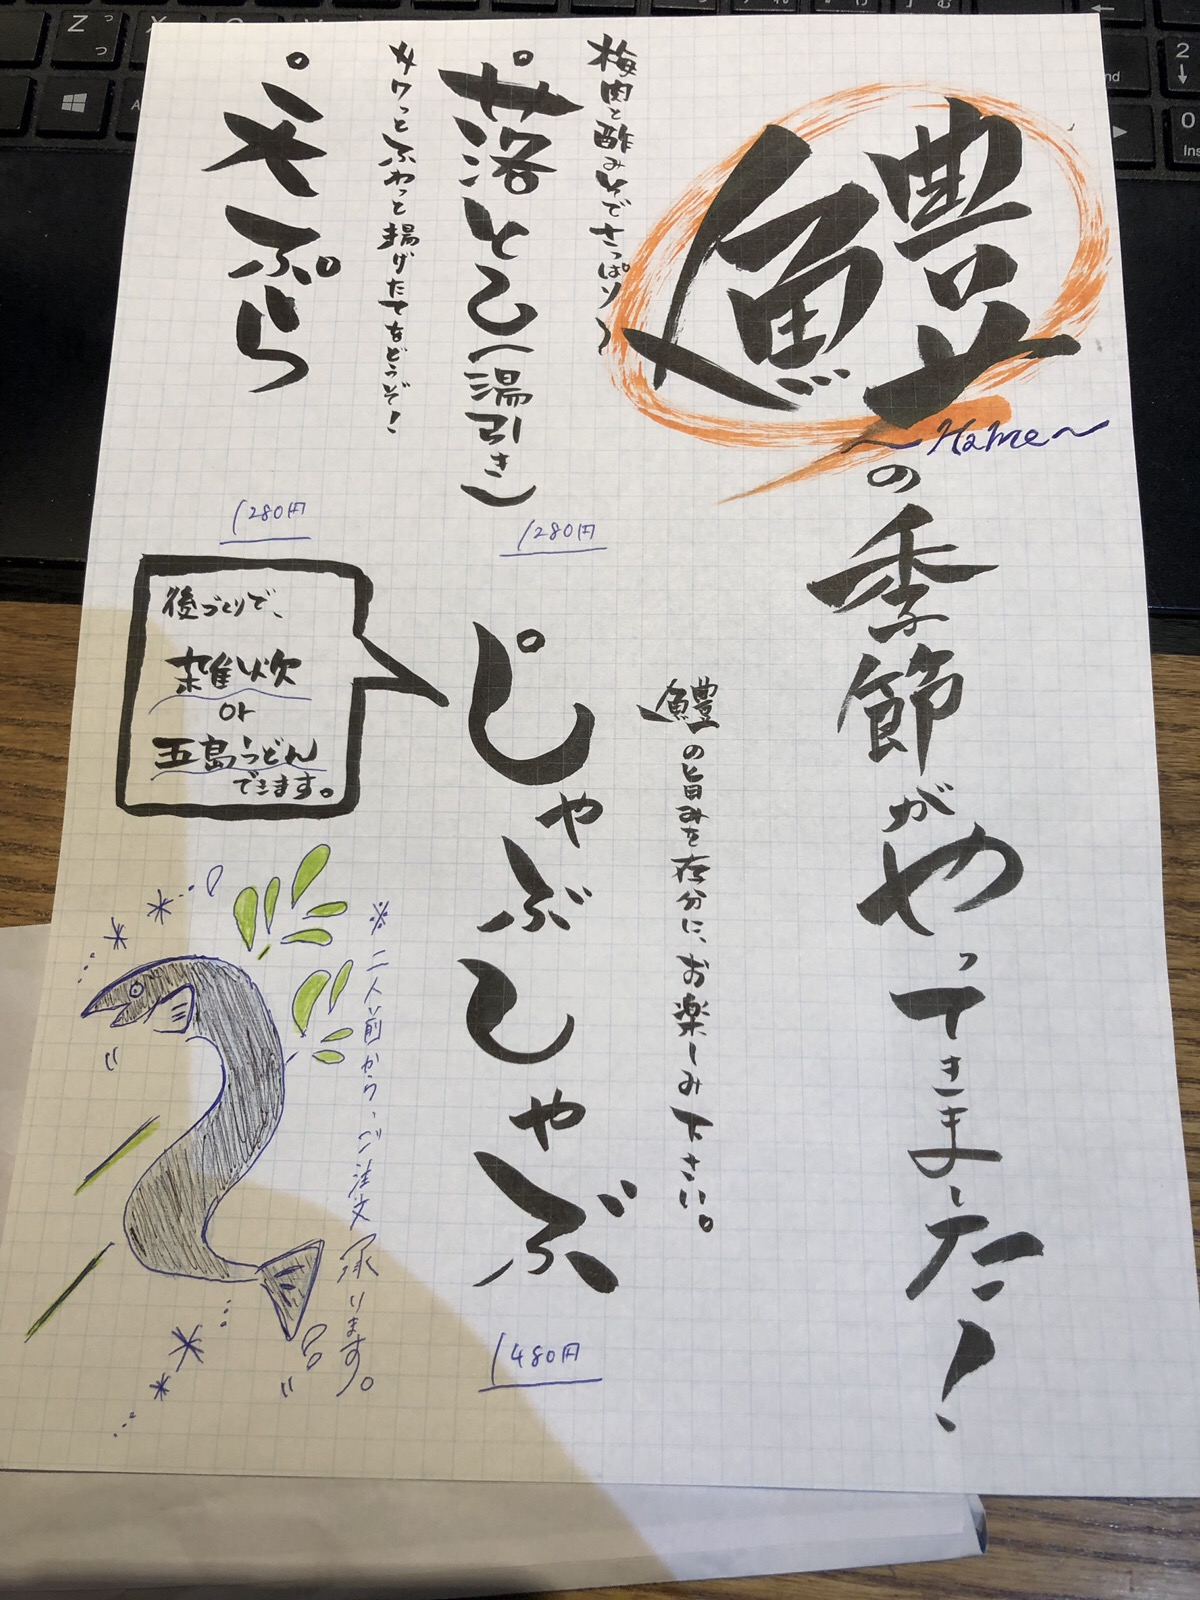 鱧
～Hamo～
の季節がやってきました！
梅肉と酢みそでさっぱり〜
落とし(湯引き)
1280円
サクっとふわっと揚げたてをどうぞ！
天ぷら
1280円
鱧の旨みを存分に、お楽しみ下さい。
しゃぶしゃぶ
1480円
後づくりで、
雑炊
or
五島うどん
できます。
※二人前から、ご注文承ります。